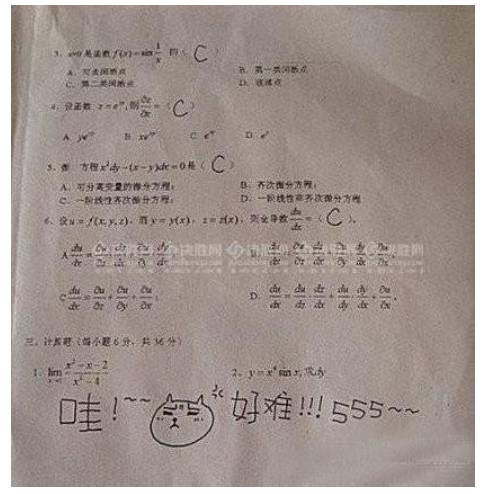 3. x=0 是函数 f(x)=sin 1/x 的 ( C )
A. 可去间断点 B. 第一类间断点
C. 第二类间断点 D. 连续点
4. 设函数 z=e^xy, 则 ∂z/∂x = ( C )
A. ye^xy B. xe^xy C. e^xy D. e^y
5. 微 方程 x²dy-(x-y)dx=0 是 ( C )
A. 可分离变量的微分方程; B. 齐次微分方程;
C. 一阶线性齐次微分方程; D. 一阶线性非齐次微分方程
6. 设 u=f(x,y,z), 而 y=y(x), z=z(x), 则全导数 du/dx = ( C ).
决胜网 决胜网 决胜网
A
C du/dx = ∂u/∂z + ∂u/∂y + ∂u/∂x; D.
三、计算题 (每小题 6 分, 共 36 分)
1. lim x²-x-2 / x²-4 2. y=x⁴ sin x, 求 dy
哇!~~ 好难!!! 555~~